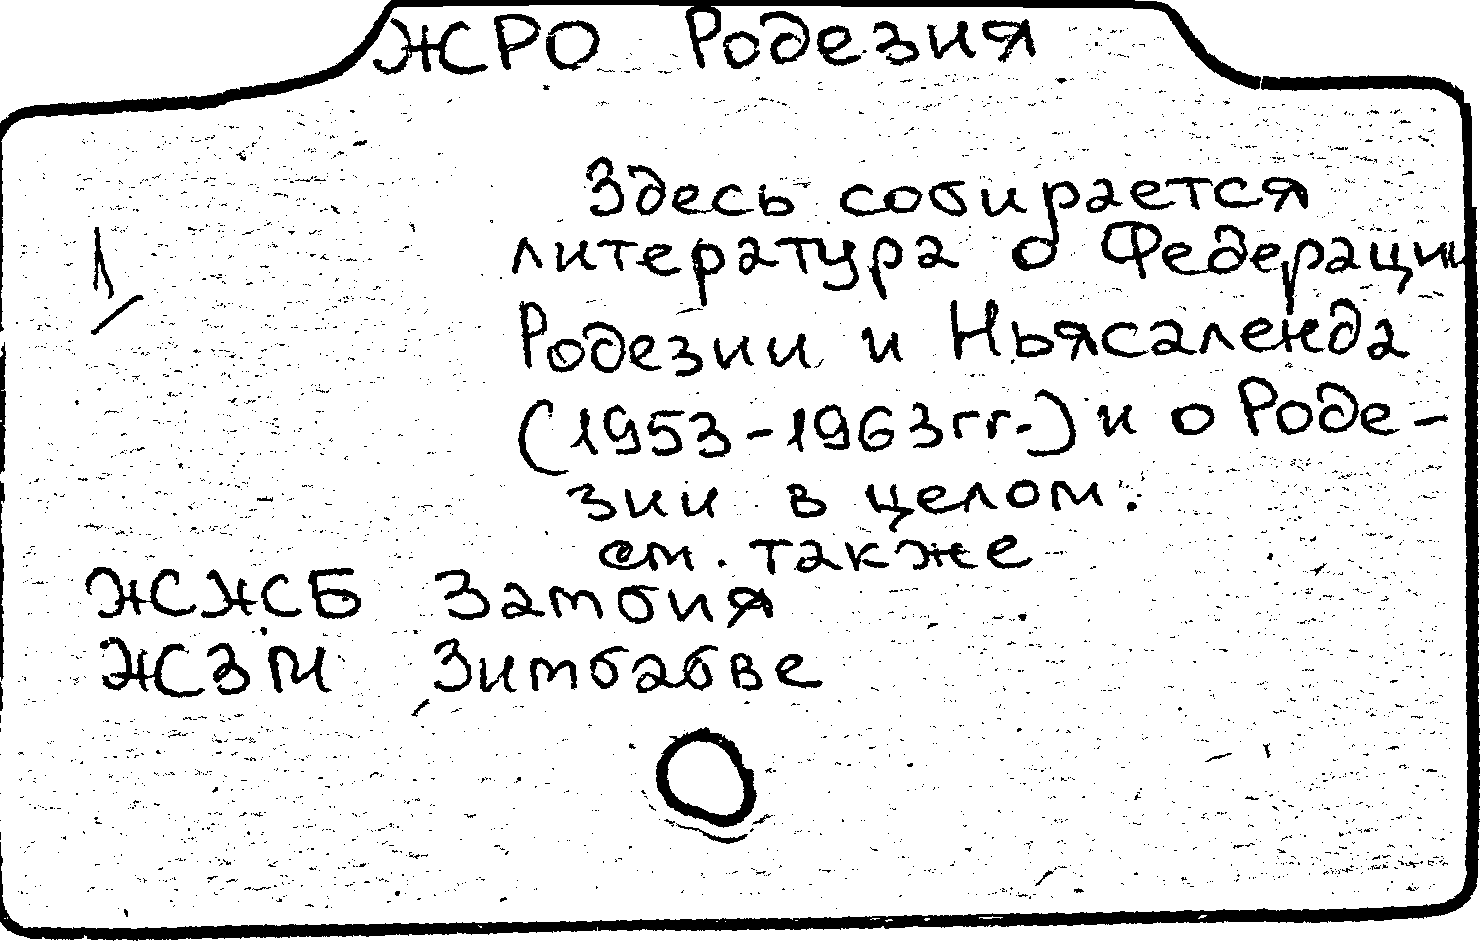 ЖСРО Родезия
Здесь собирается
литература о Федерации
1
Родезии и Ньясаленда
(1953-1963гг.) и о Роде-
зии в целом.
см. также
ЖСЖСБ Замбия
ЖСЗИ Зимбабве